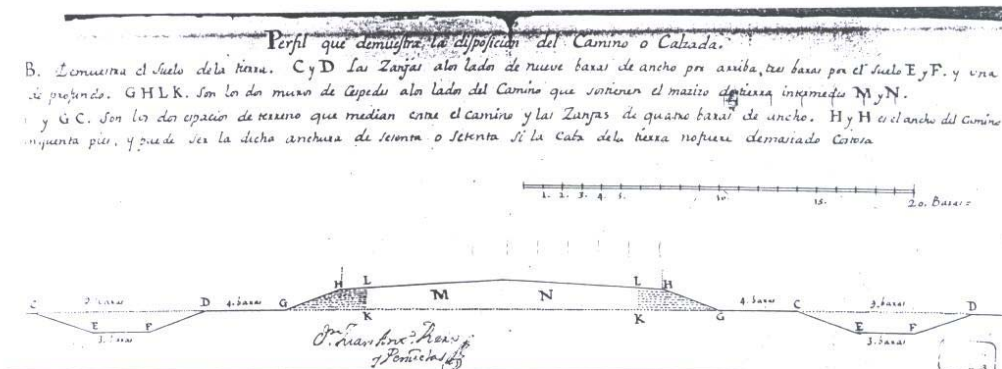 Perfil que demuestra la disposicion del Camino o Calzada.
B. Demuestra el suelo dela tierra. C y D Las Zanjas alos lados de nueve baras de ancho por arriba, tres baras por el suelo E y F. y una
de profundo. G H L K. Son los dos muros de Cespedes alos lados del Camino que sostienen el mazizo de tierra intermedio M y N.
y G C. Son los dos espacios de terreno que median entre el camino y las Zanjas de quatro baras de ancho. H y H es el ancho del Camino
inquenta pies, y puede ser la dicha anchura de sesenta o setenta si la Calz dela tierra nofuere demasiado Costosa
1. 2. 3. 4. 5. 10. 15. 20. Baras
H L L H
C 9. baras D 4. baras G M N 4. baras C 9. baras D
K K G
E F E F
3. baras 3. baras
Juan Anto.